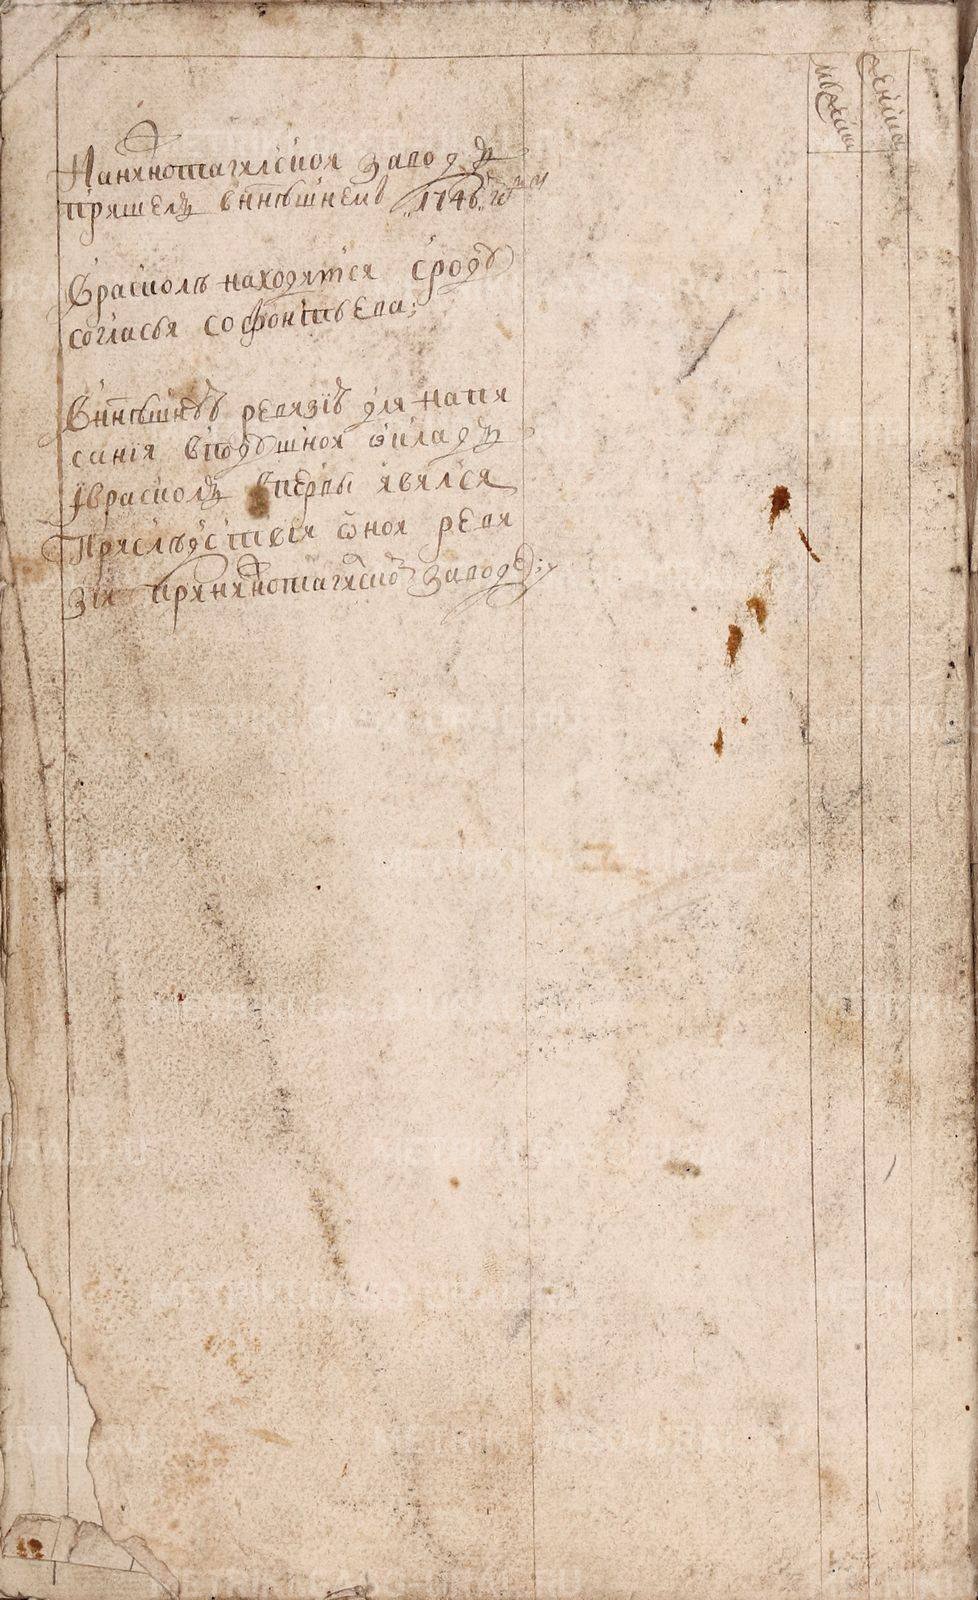 На нижнотагилской завод
пришел в ннешнем 1746 году
В расколъ находится сроду
согласья софонтьева:
В ннешней ревизиі для напи
санія в подушной ѡклад
і в раскол впервы явился
При следствіи ѡной реви
зіи при нижнотагилском заводе:
мужска
женска
METRIKI.GASO-URAL.RU